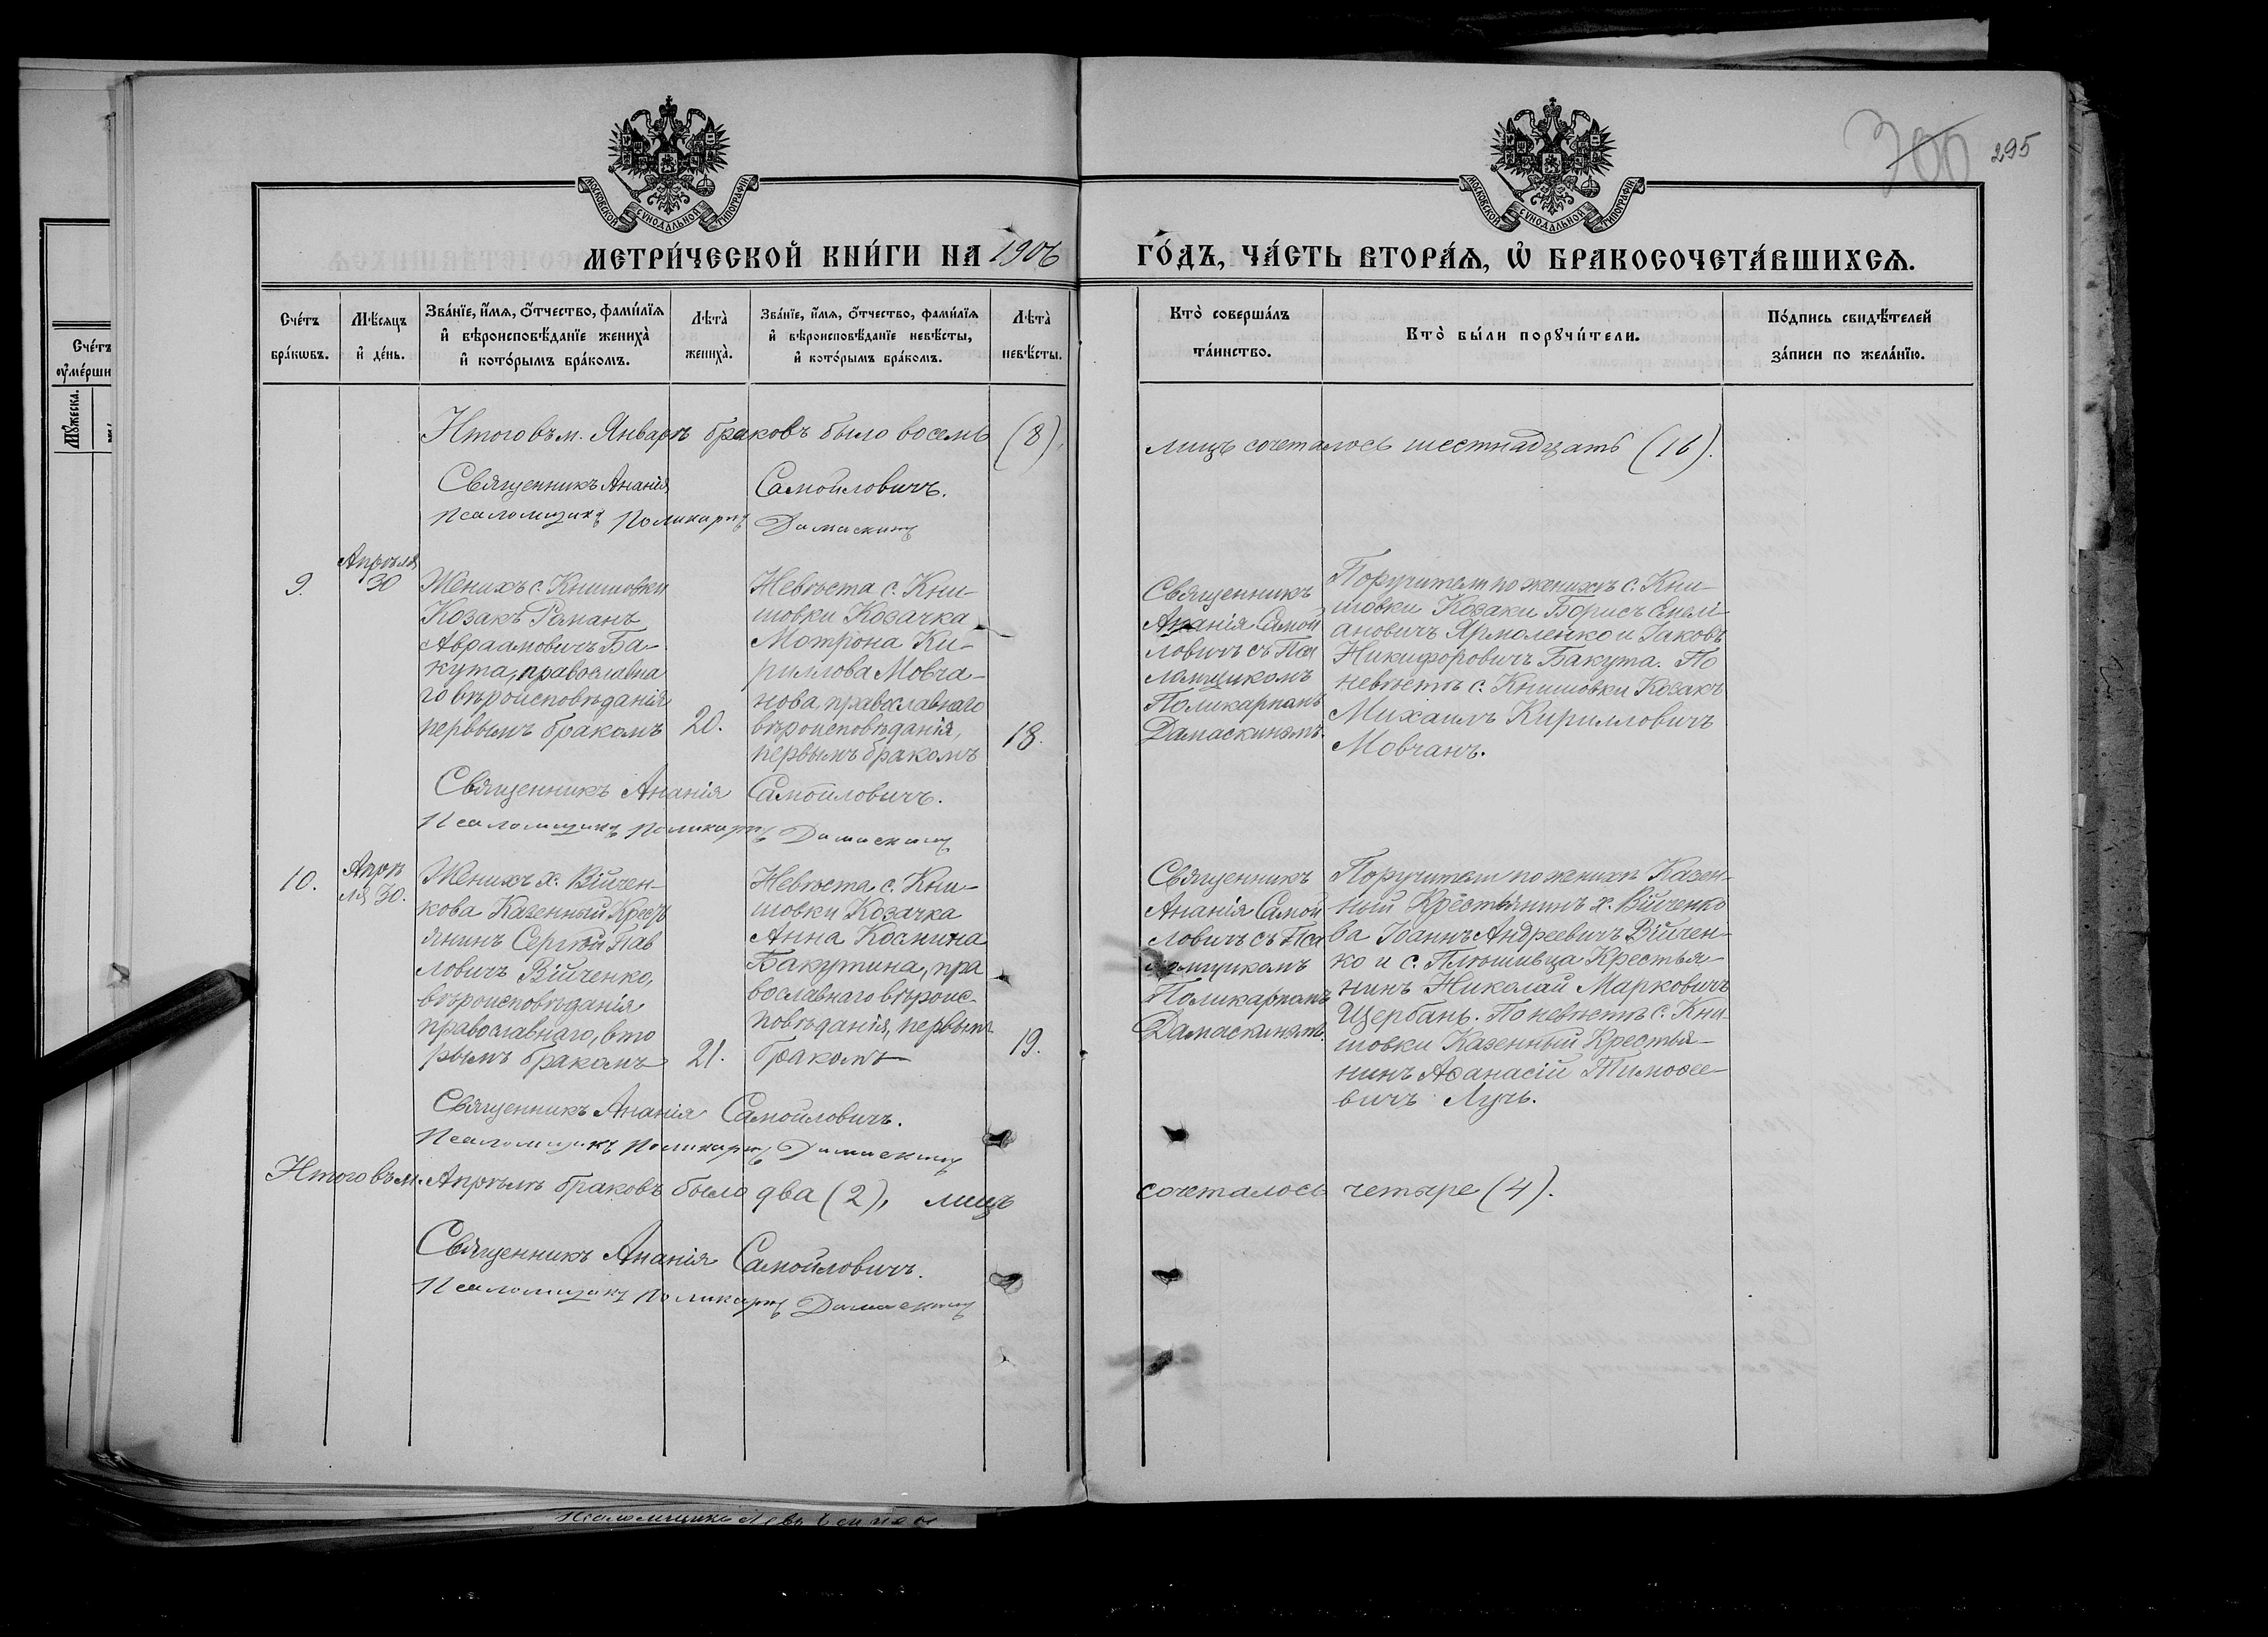 300 295
МОСКОВСКОЙ СѴНОДАЛЬНОЙ ТИПОГРАФІИ
МОСКОВСКОЙ СѴНОДАЛЬНОЙ ТИПОГРАФІИ
МЕТРИ́ЧЕСКОЙ КНИ́ГИ НА 1906 ГО́ДЪ, ЧА́СТЬ ВТОРА́Ѧ, Ѡ҆ БРАКОСОЧЕТА́ВШИХСѦ.
Сче́тъ
бра́кѡвъ.
Мѣ́сяцъ
и҆ де́нь.
Зва́нїе, и҆́мѧ, ѻ҆́тчество, фами́лїѧ
и҆ вѣроисповѣ́данїе жениха̀
и҆ кото́рымъ бра́комъ.
Лѣта̀
жениха̀.
Зва́нїе, и҆́мѧ, ѻ҆́тчество, фами́лїѧ
и҆ вѣроисповѣ́данїе невѣ́сты,
и҆ кото́рымъ бра́комъ.
Лѣта̀
невѣ́сты.
Кто̀ соверша́лъ
та́инство.
Кто̀ бы́ли порꙋчи́тели.
По́дпись свидѣ́телей
за́писи по жела́нїю.
Сче́тъ
оу҆ме́рши
Мꙋ́жеска.
Итого въ м. Январѣ браковъ было восемь (8), лицъ сочеталось шестнадцать (16).
Священникъ Ананія Самойловичъ.
Псаломщикъ Поликарпъ Дамаскинъ
9.
Апрѣля
30
Женихъ с. Книшовки
Козакъ Романъ
Авраамовичъ Ба-
кута, православна
го вѣроисповѣданія
первымъ бракомъ
20.
Невѣста с. Кни-
шовки Козачка
Мотрона Ки-
риллова Мовча-
нова, православнаго
вѣроисповѣданія,
первымъ бракомъ
18.
Священникъ
Ананія Самой
ловичъ съ Пса
ломщикомъ
Поликарпомъ
Дамаскинымъ.
Поручители по женихѣ с. Кни-
шовки Козаки Борисъ Емелі-
ановичъ Ярмоленко и Іаковъ
Никифоровичъ Бакута. По
невѣстѣ с. Книшовки Козакъ
Михаилъ Кирилловичъ
Мовчанъ.
Священникъ Ананія Самойловичъ.
Псаломщикъ Поликарпъ Дамаскинъ
10.
Апрѣ
ля 30.
Женихъ х. Війчен-
кова Казенный Кресть
янинъ Сергѣй Пав
ловичъ Війченко,
вѣроисповѣданія
православнаго, вто
рымъ бракомъ
21.
Невѣста с. Кни-
шовки Козачка
Анна Косьмина
Бакутина, пра
вославнаго вѣроис-
повѣданія, первымъ
бракомъ
19.
Священникъ
Ананія Самой
ловичъ съ Пса
ломщикомъ
Поликарпомъ
Дамаскинымъ.
Поручители по женихѣ Казен-
ный Крестьянинъ х. Війченко
ва Іоаннъ Андреевичъ Війчен-
ко и с. Плѣшивца Крестья-
нинъ Николай Марковичъ
Щербань. По невѣстѣ с. Кни-
шовки Казенный Крестья-
нинъ Аѳанасій Тимоѳе-
вичъ Лучь.
Священникъ Ананія Самойловичъ.
Псаломщикъ Поликарпъ Дамаскинъ
Итого въ м. Апрѣлѣ браковъ было два (2), лицъ сочеталось четыре (4).
Священникъ Ананія Самойловичъ.
Псаломщикъ Поликарпъ Дамаскинъ
Псаломщикъ